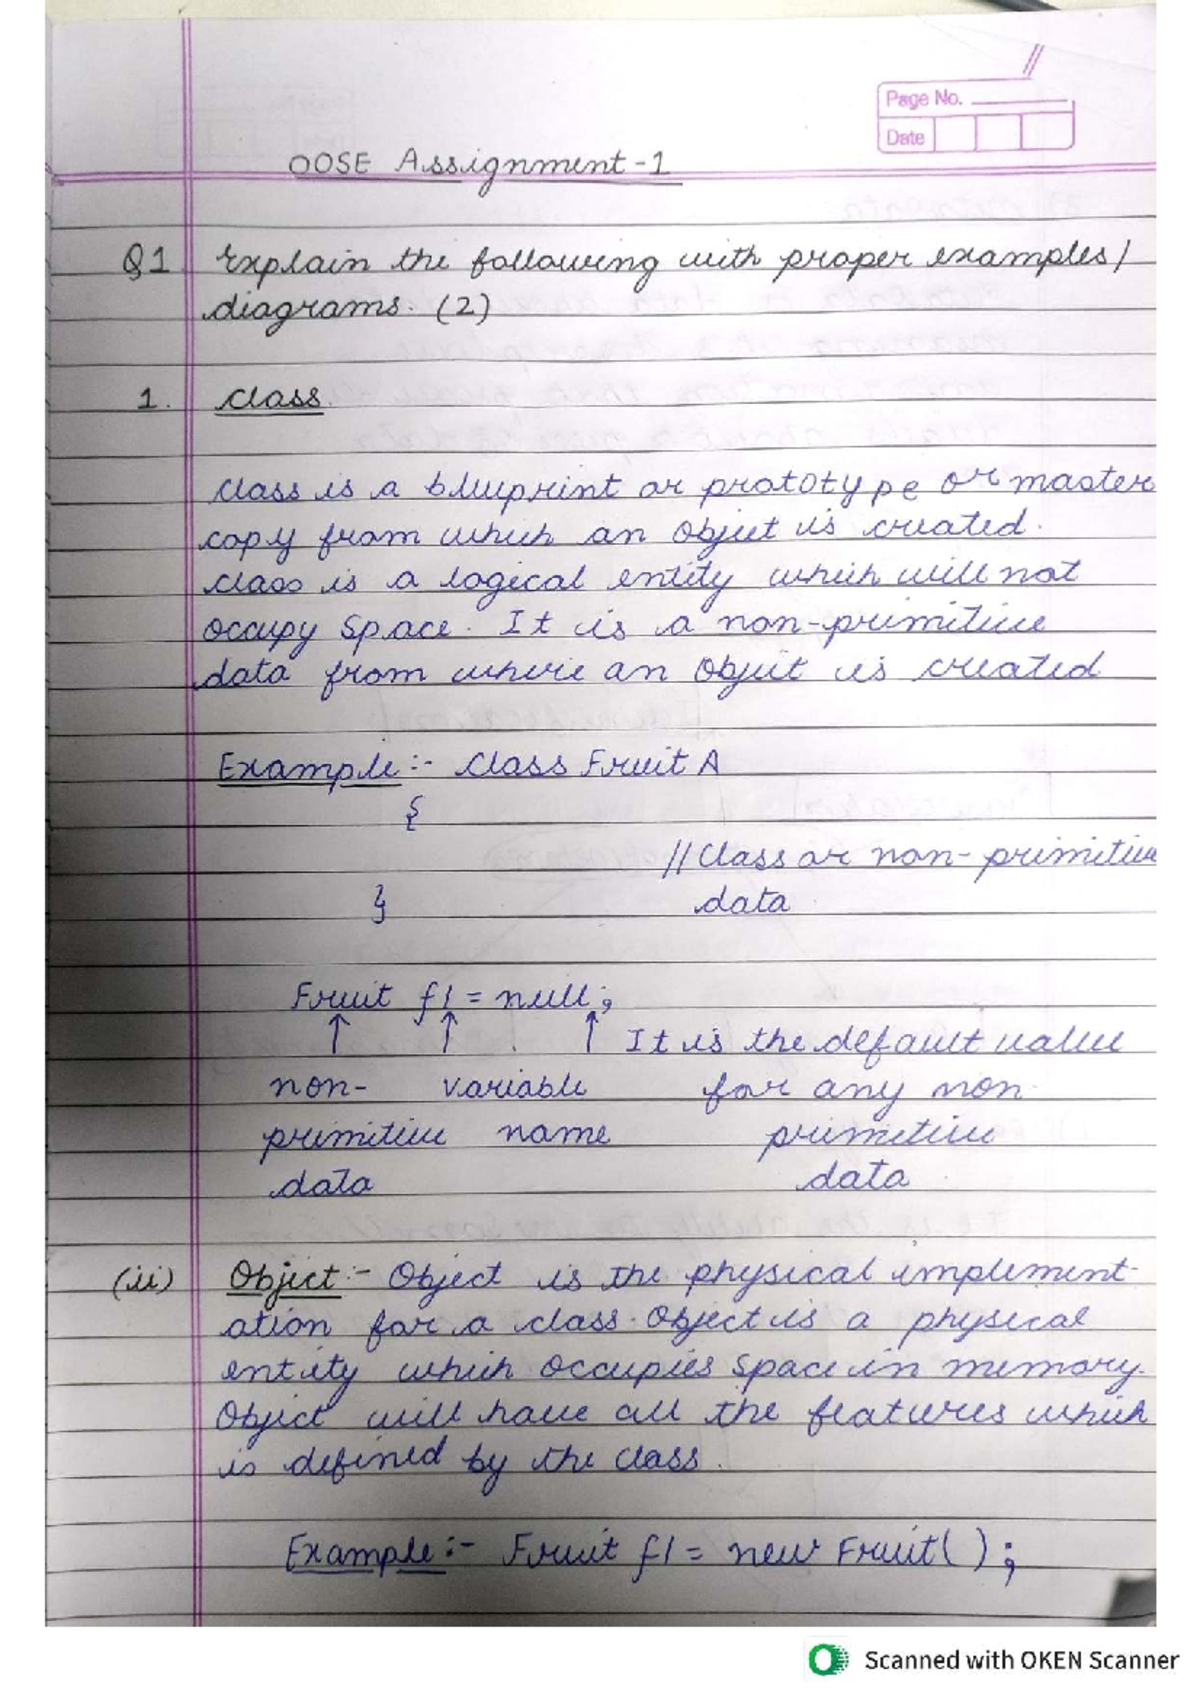 Page No.
Date
OOSE Assignment-1
Q1 Explain the following with proper examples/
diagrams. (2)
1. Class
Class is a blueprint or prototype or master
copy from which an object is created.
Class is a logical entity which will not
occupy space. It is a non-primitive
data from where an object is created
Example:- Class Fruit A
{
// Class or non-primitive
} data
Fruit f1 = null;
↑ ↑ ↑ It is the default value
non- variable for any non
primitive name primitive
data data
(ii) Object:- Object is the physical implement-
ation for a class. Object is a physical
entity which occupies space in memory.
Object will have all the features which
is defined by the class.
Example:- Fruit f1 = new Fruit();
Scanned with OKEN Scanner